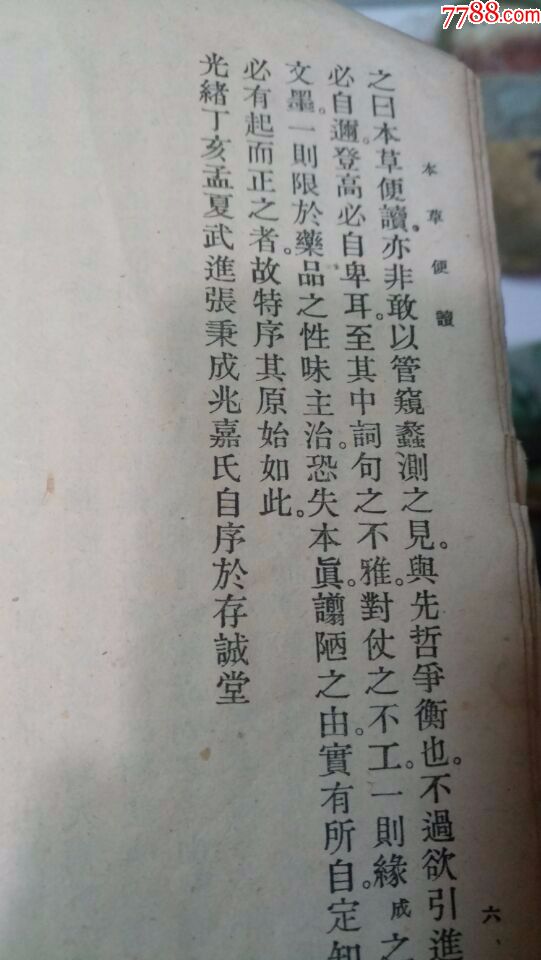 7788.com
本草便讀
六
之曰本草便讀。亦非敢以管窺蠡測之見。與先哲爭衡也。不過欲引進
必自邇。登高必自卑耳。至其中詞句之不雅。對仗之不工。一則緣成之
文墨。一則限於藥品之性味主治。恐失本眞。譾陋之由。實有所自。定知
必有起而正之者。故特序其原始如此。
光緒丁亥孟夏武進張秉成兆嘉氏自序於存誠堂